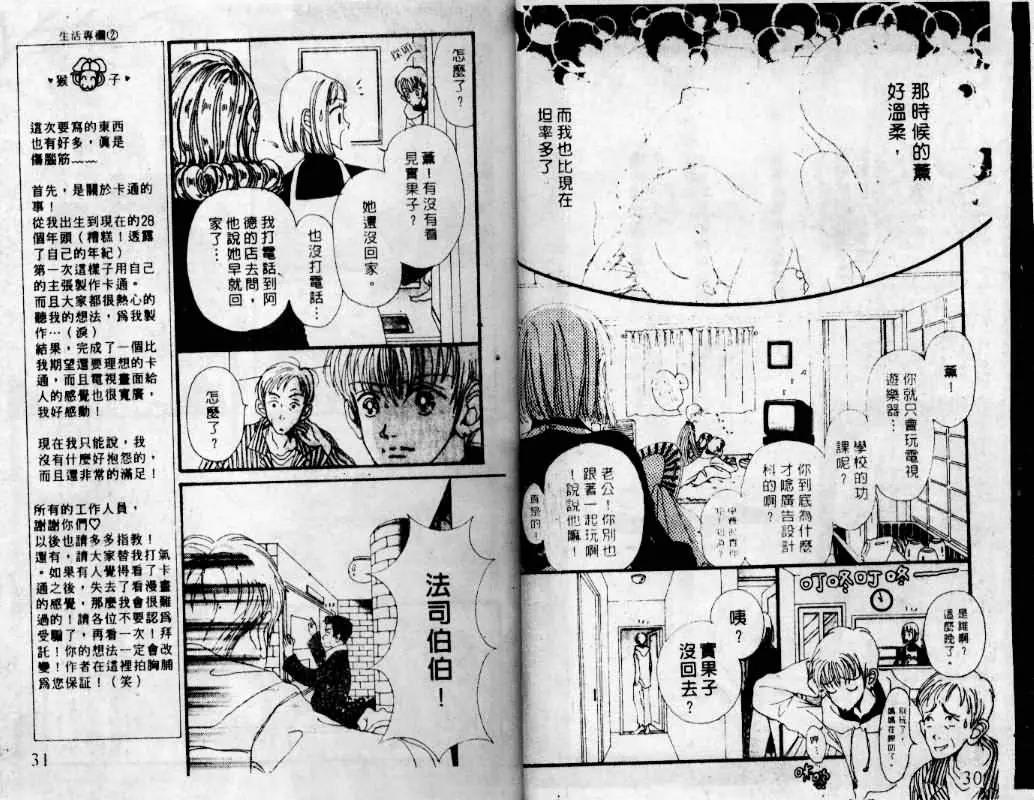 那時候的薰
好溫柔，
而我也比現在
坦率多了
薰！
你就只會玩電視
遊樂器…
學校的功
課呢？
你到底為什麼
才唸廣告設計
科的啊？
老公！你別也
跟著一起玩啊
！說說他嘛！
真是的！
叮咚叮咚——
是誰啊？
這麼晚了。
別玩了，
媽媽在罵的了。
咦？
實果子
沒回去？
30
怎麼了？
薰！有沒有看
見實果子？
她還沒回家。
也沒打電話…
我打電話到阿
德的店去問，
他說她早就回
家了…
怎麼了？
法司伯伯！
生活專欄②
猴子
這次要寫的東西
也有好多，真是
傷腦筋﹏﹏
首先，是關於卡通的
事！
從我出生到現在的28
個年頭（糟糕！透露
了自己的年紀）
第一次這樣子用自己
的主張製作卡通。
而且大家都很熱心的
聽我的想法，爲我製
作…（淚）
結果，完成了一個比
我期望還要理想的卡
通，而且電視畫面給
人的感覺也很寬廣，
我好感動！
現在我只能說，我
沒有什麼好抱怨的，
而且還非常的滿足！
所有的工作人員，
謝謝你們♡
以後也請多多指教！
還有，請大家替我打氣
。如果有人覺得看了卡
通之後，失去了看漫畫
的感覺，那麼我會很難
過的！請各位不要認爲
受騙了，再看一次！拜
託！你的想法一定會改
變！作者在這裡拍胸脯
爲您保証！（笑）
31